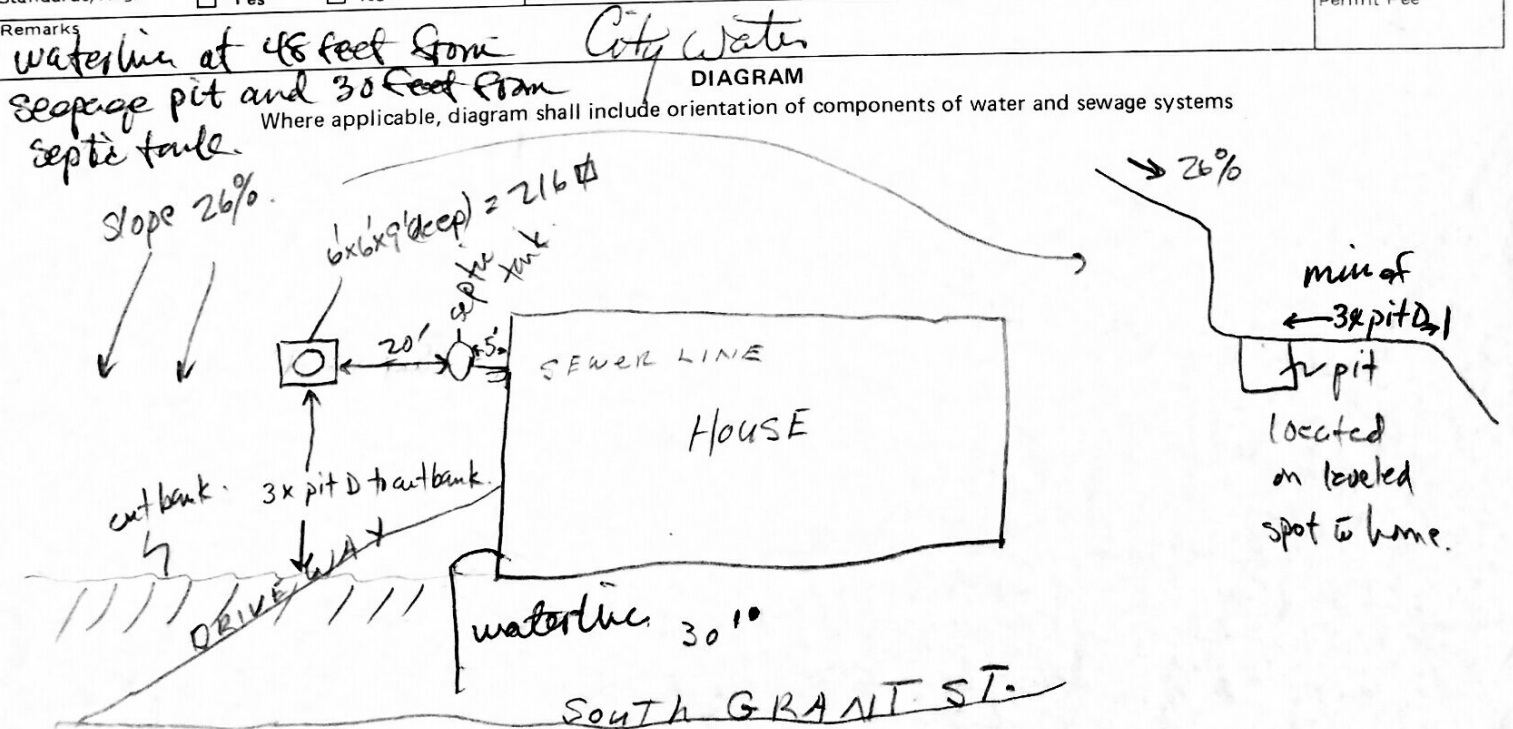 Yes
Permit Fee
Remarks
waterline at 48 feet from City Water
seepage pit and 30 feet from
septic tank.
DIAGRAM
Where applicable, diagram shall include orientation of components of water and sewage systems
slope 26%.
6'x6'x9'(deep) = 216
septic
tank
20'
5'
SEWER LINE
HOUSE
cutbank.
3x pit D to cutbank.
DRIVEWAY
waterline 30"
SOUTH GRANT ST.
26%
min of
3x pit D
pit
located
on leveled
spot to home.